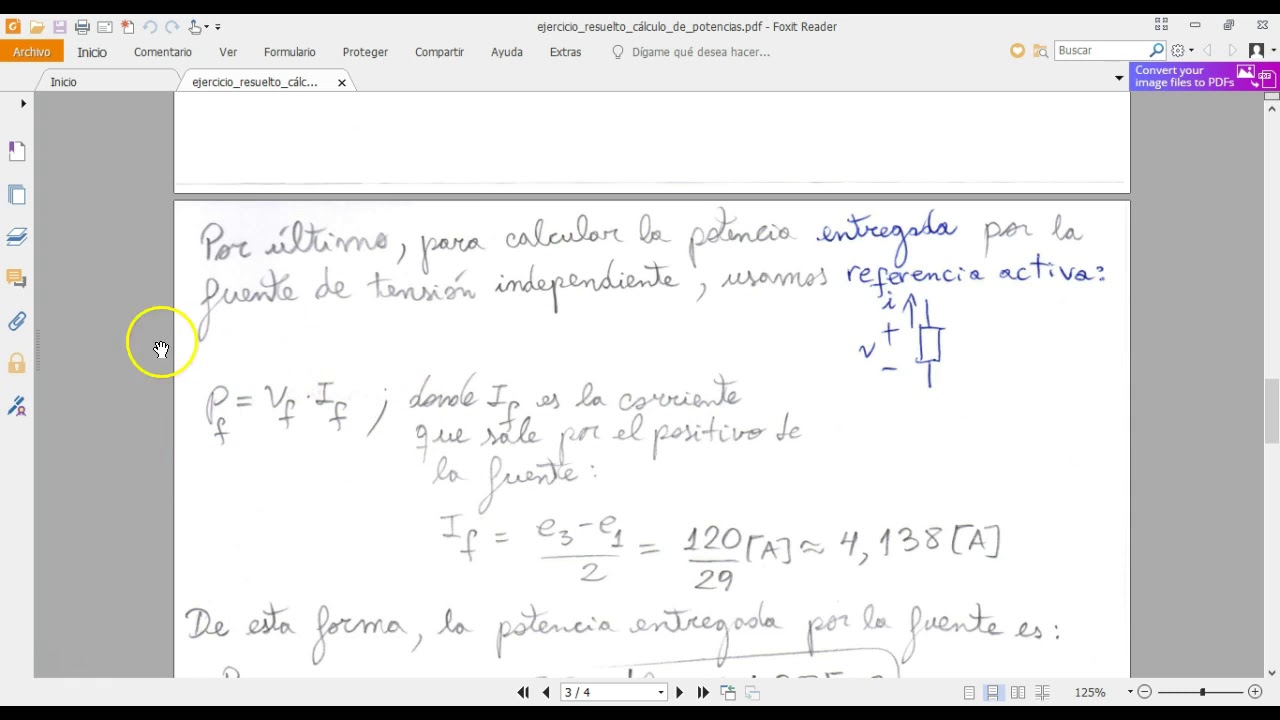 ejercicio_resuelto_cálculo_de_potencias.pdf - Foxit Reader
Archivo Inicio Comentario Ver Formulario Proteger Compartir Ayuda Extras Dígame qué desea hacer... Buscar
Inicio ejercicio_resuelto_cálc... Convert your
image files to PDFs
Por último, para calcular la potencia entregada por la
fuente de tensión independiente, usamos referencia activa:
i
+
v
-
Pf = Vf · If ; donde If es la corriente
que sale por el positivo de
la fuente:
If = e3 - e1 / 2 = 120/29 [A] ≈ 4,138 [A]
De esta forma, la potencia entregada por la fuente es:
3 / 4 125%